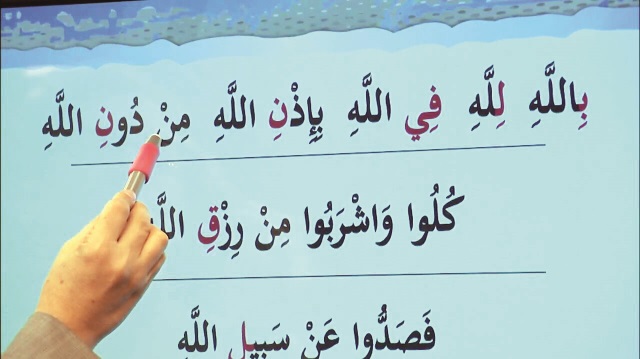 بِاللَّهِ لِلَّهِ فِي اللَّهِ بِإِذْنِ اللَّهِ مِنْ دُونِ اللَّهِ
كُلُوا وَاشْرَبُوا مِنْ رِزْقِ اللَّهِ
فَصَدُّوا عَنْ سَبِيلِ اللَّهِ